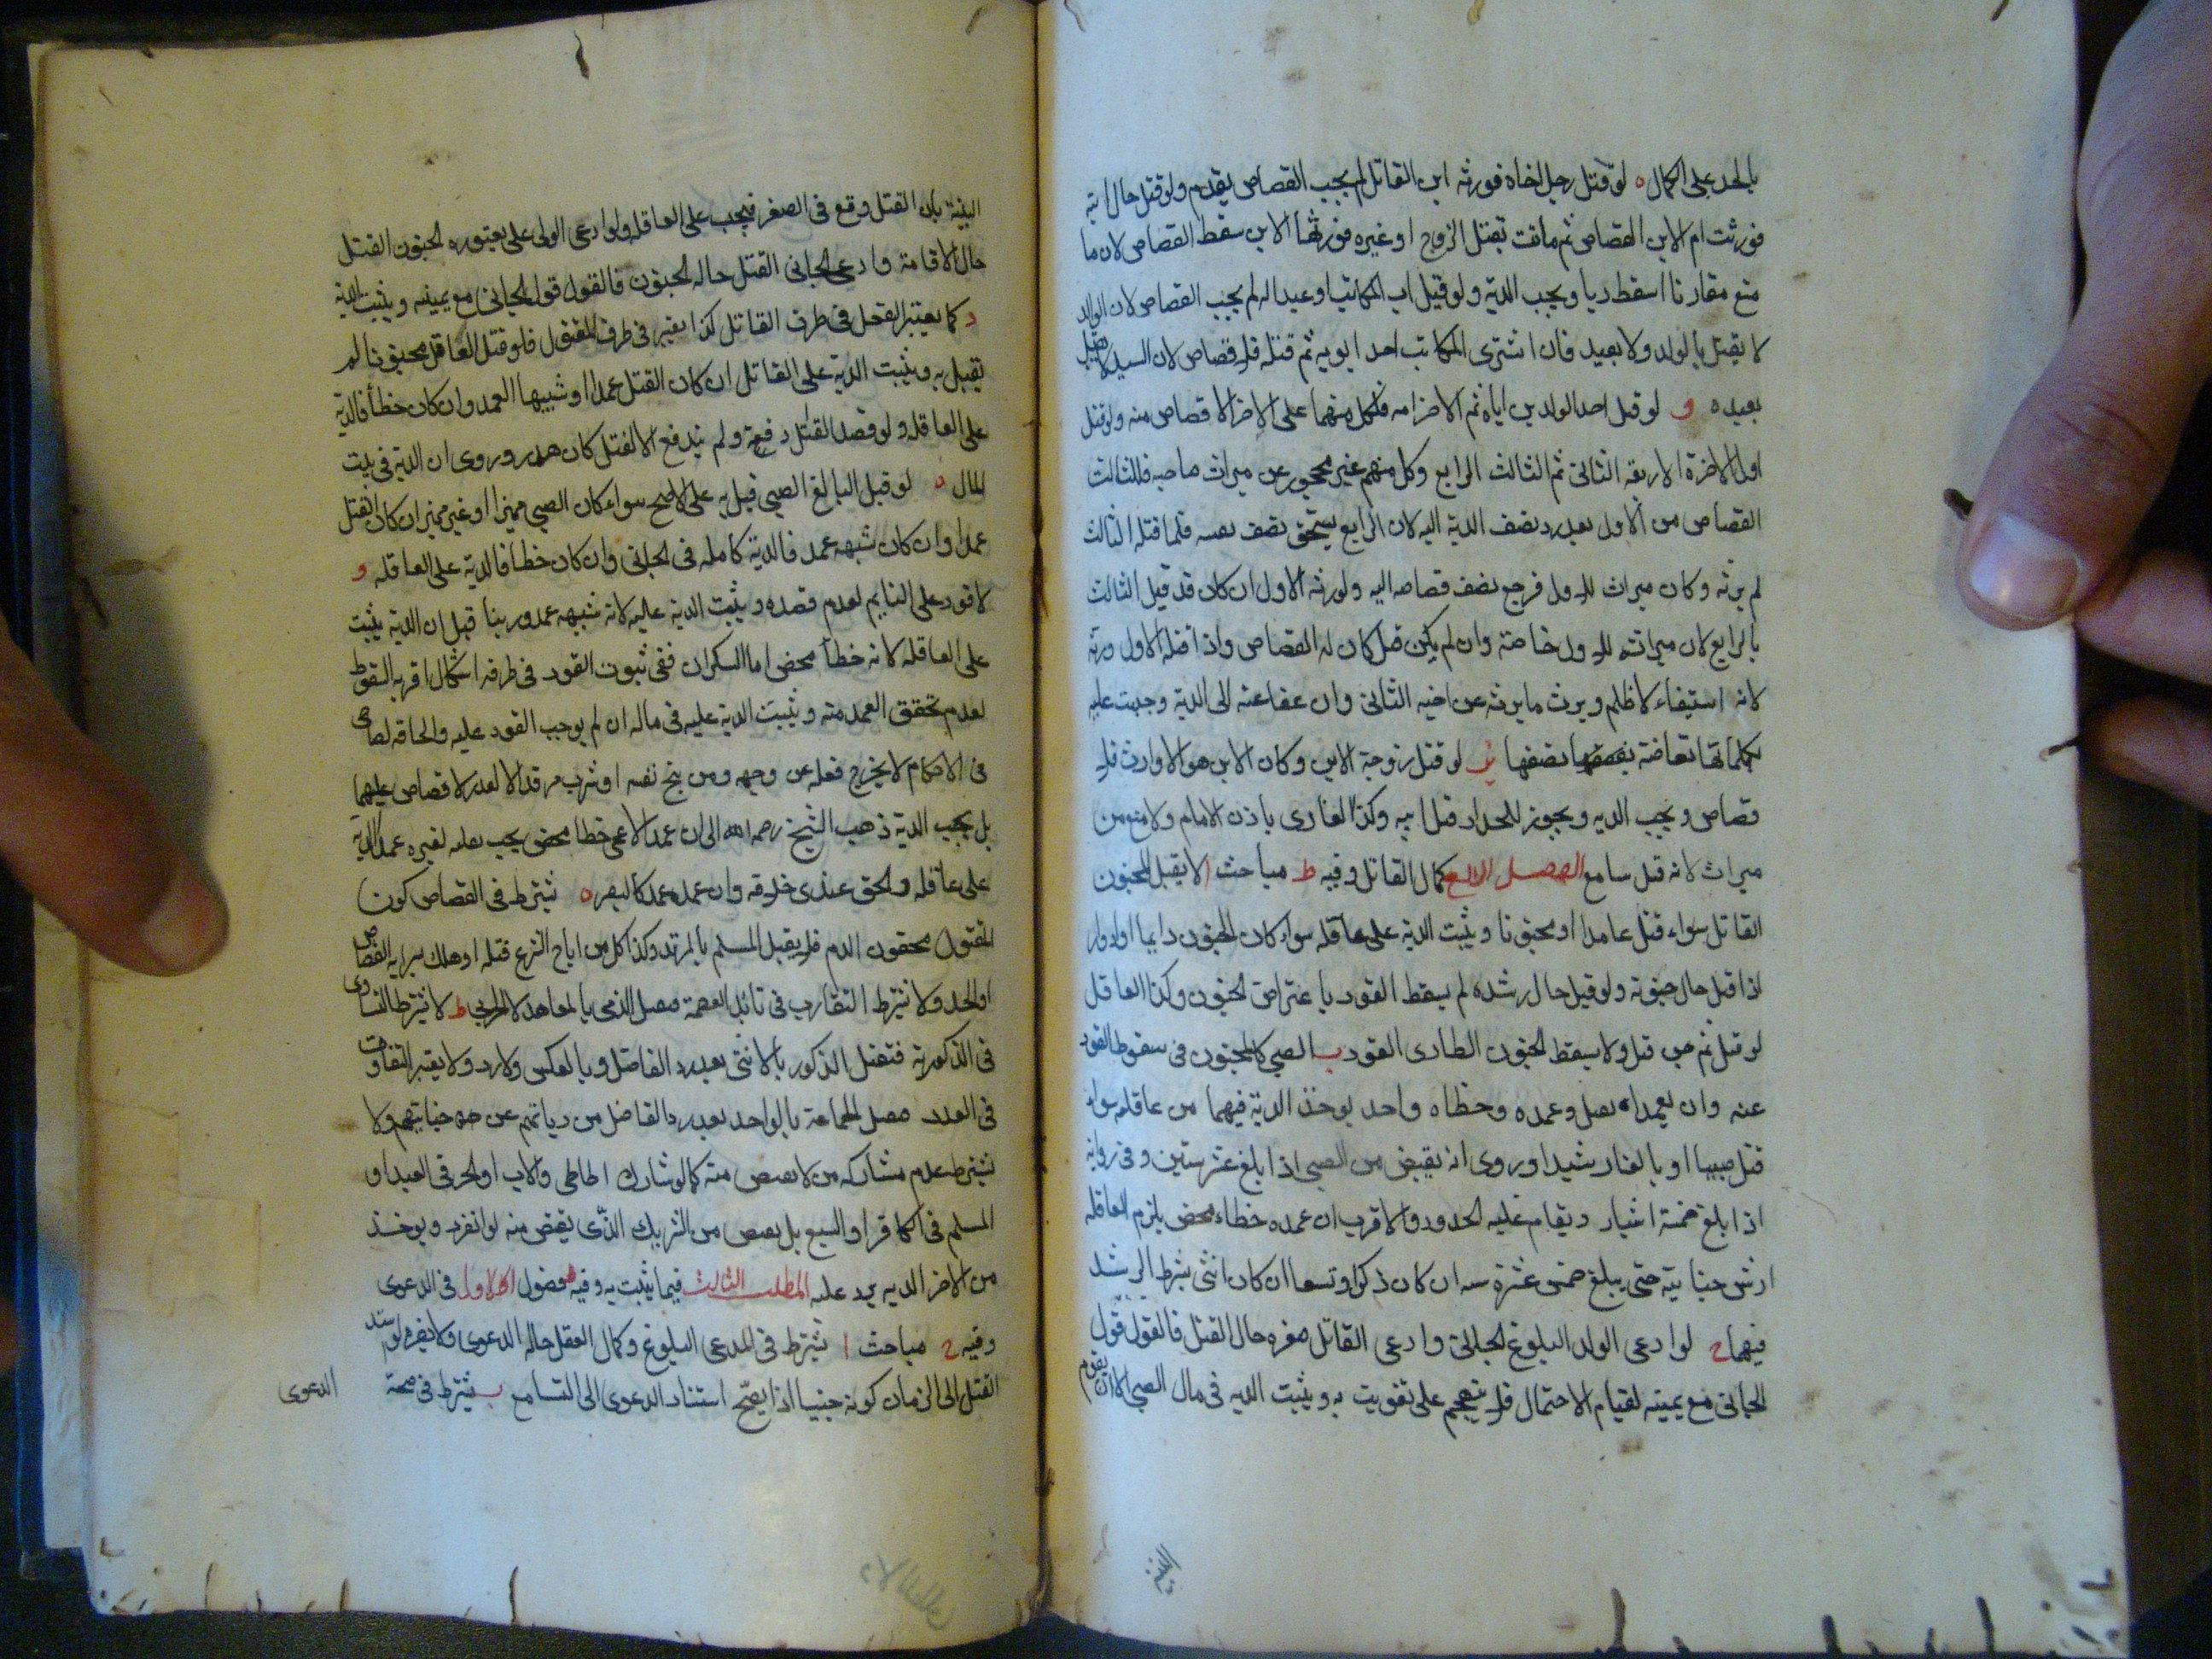 بالحد على الكمال ه لو قتل رجل اخاه فورثه ابن القاتل لم يجب القصاص يقدم ولو قتل خال ابنه
فورثت ام الابن القصاص ثم ماتت بقتل الزوج او غيره فورثها الابن سقط القصاص لان ما
منع مقارنا اسقط رياويجب الدية ولو قتل اب المكاتب او عبدا له لم يجب القصاص لان الوالد
لا يقتل بالولد ولا بعبد فان اشترى المكاتب احد ابويه ثم قتله فله قصاص لان السيد لا يقتل
بعبده و لو قتل احد الولدين اباه ثم الاخر امه فلكل منهما على الاخر الاقصاص منه ولو قتل
اول الاخرة الاربعة الثانى ثم الثالث الرابع وكل منهم غير محجور عن ميراث صاحبه فللثالث
القصاص من الاول بعد رد نصف الدية اليه لان الرابع يستحق نصف نفسه فلما قتله الثالث
لم يرثه وكان ميراث للاول فرجع نصف قصاصه اليه ولورثه الاول ان كان قد قتل الثالث
بالرابع لان ميراثه للاول خاصة وان لم يكن قتل كان له القصاص واذا قتله الاول ورثه
لانه استيفاء لا ظلم ويرث ما يرثه عن اخيه الثانى وان عفا عنه الى الدية وجبت عليه
بكمالها تقاضه بنصفها نصفها ز لو قتل زوجة الابن وكان الابن هو الاوارث فله
قصاص ويجب الديه ويجوز للحداد قتل ابيه وكذا الغازى باذن الامام ولا منع من
ميراث لانه قتل سامع الفصل الرابع كمال القاتل وفيه ط مباحث ا لا يقتل المجنون
القاتل سواء قتل عامدا او مجنونا ويثبت الدية على عاقله سواء كان الجنون دايما او ادوارا
اذا قتل حال جنونه ولو قتل حال رشده لم يسقط القود باعتراض الجنون وكذا العاقل
لو قتل ثم جن قتل ولا يسقط الجنون الطارى القود ب الصبى كالمجنون فى سقوط القود
عنه وان تعمدا قتل وعمده وخطاه واحد يوخذ الدية فيهما من عاقله سواء
قتل صبيا او بالغا رشيدا وروى انه يقبض من الصبى اذا بلغ عشر سنين وفى رواية
اذا بلغ خمسة اشبار ويقام عليه الحدود والاقرب ان عمده خطاء محض يلزم العاقله
ارش جنايته حتى يبلغ خمس عشرة سنه ان كان ذكرا وتسعا ان كان انثى بشرط الرشد
فيهما ح لو ادعى الولد البلوغ لحباتى وادعى القاتل صغره حال القتل فالقول قول
الجانى مع يمينه لقيام الاحتمال فله يتهجم على تفويت به ويثبت الديه فى مال الصبى الا ان يقوم
البينة بان القتل وقع فى الصغر فيجب على العاقله ولو ادعى الولى على يعتوره الجنون القتل
حال الافاقة وادعى الجانى القتل حاله الجنون فالقول قول الجانى مع يمينه ويثبت الدية
د كما يعتبر العقل فى طرف القاتل كذا يعتبر فى طرف المقتول فلو قتل العاقل مجنونا لم
يقتل به ويثبت الدية على القاتل ان كان القتل عمدا او شبيها العمد وان كان خطأ فالدية
على العاقله ولو قصد القتل دفعه ولم يندفع الا لقتل كان هدر وروى ان الدية فى بيت
المال ه لو قتل البالغ الصبى قتل به على الاصح سواء كان الصبى مميزا او غير مميز ان كان القتل
عمدا وان كان شبهه عمد فالدية كامله فى الجانى وان كان خطا فالدية على العاقله و
لا قود على النايم لعدم قصده ويثبت الدية عليه لانه شبهه عمد وربنا قيل ان الدية يثبت
على العاقله لانه خطأ محض اما السكران ففى ثبوت القود فى طرفه اشكال اقربه السقوط
لعدم تحقق العمد منه ويثبت الدية عليه فى ماله ان لم يوجب القود عليه والحاقه لصاحى
فى الاحكام لا يخرج فعله عن وجهه ومن بنج نفسه او شرب مرقدا لا لعدر لا قصاص عليهما
بل يجب الدية ذهب الشيخ رحمه الله الى ان عمد الاعمى خطا محض يجب بعلمه لغيره عمد الدية
على عاقله والحق عندى خلافه وان عمده عمد كالبصره يشترط فى القصاص كون
المقتول محقون الدم فلا يقتل المسلم بالمرتد وكذا كل من اباح الشرع قتله او هلك بسراية القصاص
او الحد ولا يشترط التقارب فى تابيد العصمة فيقتل الذمى بالمعاهد لا الحربى ط لا يشترط التساوى
فى الذكورية فتقتل الذكور بالانثى بعد رد الفاضل وبالعكس ولا رد ولا يعتبر التفاوت
فى العدد فيقتل الجماعة بالواحد بعد رد الفاضل من دياتهم عن جنايتهم ولا
يشترط عدم مشاركه من لا يقتص منه كما لو شارك الخاطى والاب او الحر فى العبد او
المسلم فى الكافر او السبع بل يقتص من الشريك الذى يقتص منه لو انفرد ويوخذ
من الاخر الديه يرد عليه المطلب الثالث فيما يثبت به وفيه فصول الاول فى الدعوى
وفيه ح مباحث ا يشترط فى المدعى البلوغ وكمال العقل حاله الدعوى ولا يضر لو اسند
القتل الى الزمان كونه جنينا اذا يصح استناد الدعوى الى التسامع ب يشترط فى صحة
الدعوى